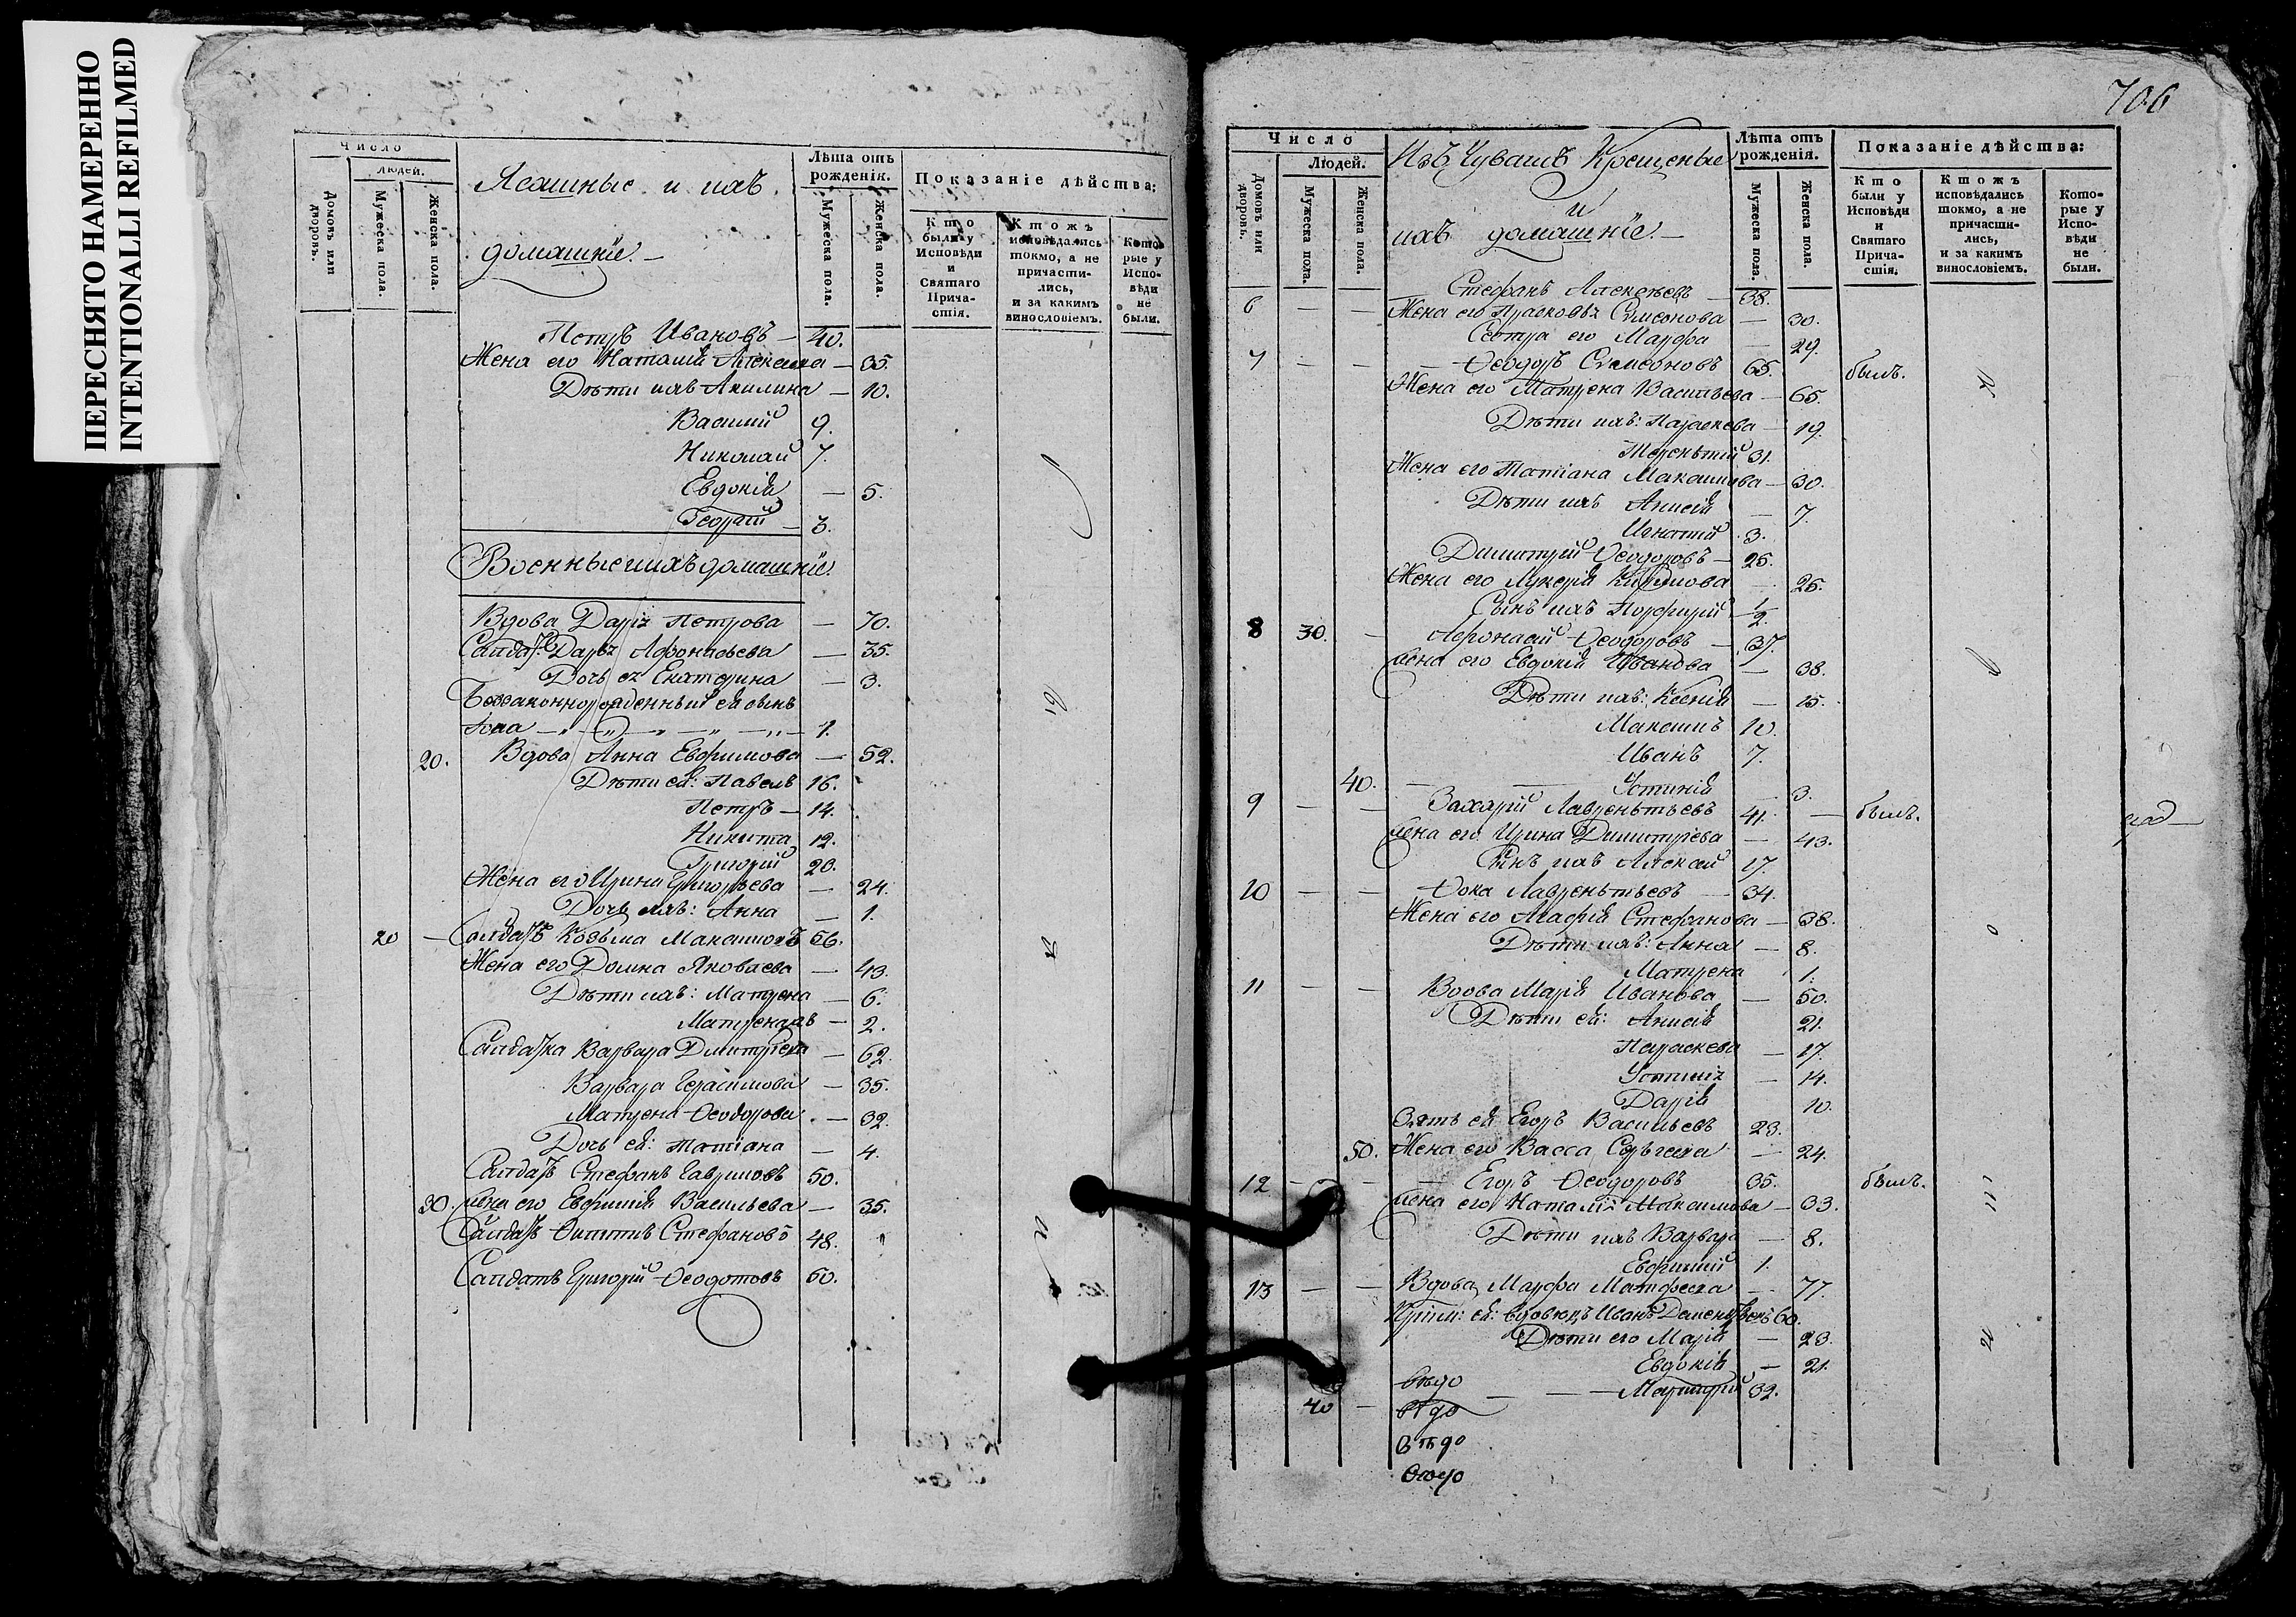 ПЕРЕСНЯТО НАМЕРЕННО
INTENTIONALLI REFILMED
Число
Людей.
Домовъ или дворовъ.
Мужеска пола.
Женска пола.
Ясашные и ихъ
домашніе.
Лѣта отъ рожденія.
Мужеска пола.
Женска пола.
Показаніе дѣйства:
Кто были у Исповѣди и Святаго Прича-стія.
Ктожъ исповѣдались токмо, а не причасти-лись, и за какимъ винословіемъ.
Кото-рые у Испо-вѣди не были.
Петръ Ивановъ — 40.
Жена его Наталія — 35.
Дѣти ихъ Акилина — 10.
Василий 9.
Николай 7.
Евдокія — 5.
Георгий — 3.
Военные и ихъ домашніе.
Вдова Дарія Петрова — 70.
Дарья Афонасьева — 35.
Дочь ея Екатерина — 3.
Беззаконнорожденный ей сынъ
1.
20. Вдова Анна Евфимова — 52.
Дѣти ей: Павелъ 16.
Петръ — 14.
Никита 12.
Григорий 20.
Жена его Ирина Григорьева — 24.
Дочь ихъ: Анна — 1.
20 — Салдатъ Козьма Максимовъ 56.
Жена его Домна Яковлева — 43.
Дѣти ихъ: Матрена — 6.
Матрена — 2.
Салдатка Варвара Димитріева — 62.
Варвара Герасимова — 35.
Матрена Ѳеодорова — 32.
Дочь ей: Татіана — 4.
Салдатъ Стефанъ Гавриловъ 50.
30. Жена его Евфимія Васильева — 35.
Салдатъ Стефановъ 48.
Салдатъ Григорий Ѳеодотовъ 50.
706
Число
Людей.
Домовъ или дворовъ.
Мужеска пола.
Женска пола.
Изъ Чувашъ Крещеные
и
ихъ домашніе.
Лѣта отъ рожденія.
Мужеска пола.
Женска пола.
Показаніе дѣйства:
Кто были у Исповѣди и Святаго Прича-стія.
Ктожъ исповѣдались токмо, а не причасти-лись, и за какимъ винословіемъ.
Кото-рые у Испо-вѣди не были.
6 — — Стефанъ Алексѣевъ — 38.
Жена его Прасковья Симеонова — 30.
Сестра его Марфа — 29.
7 — — Ѳеодоръ Симеоновъ 65. былъ.
Жена его Матрена Васильева — 65.
Дѣти ихъ: Параскева — 19.
Терентий 31.
Жена его Татіана Максимова — 30.
Дѣти ихъ Анисія — 7.
Игнатий 3.
Димитрий Ѳеодоровъ — 25.
Жена его Лукерія — 25.
Сынъ ихъ Порфирий 1/2
8 30. — Афонасий Ѳеодоровъ — 37.
Жена его Евдокія Иванова — 38.
Дѣти ихъ: Ксенія — 15.
Максимъ 10.
Иванъ 7.
40. — Устинія — 3.
9 — — Захарий Лаврентьевъ 41. — былъ.
Жена его Ирина Димитріева — 43.
Сынъ ихъ Алексей 17.
10 — — Ѳока Лаврентьевъ — 34.
Жена его Агафія Стефанова — 38.
Дѣти ихъ: Анна — 8.
Матрена 1.
11 — — Вдова Марія Иванова — 50.
Дѣти ей: Анисія 21.
Параскева — 17.
Устинія — 14.
Дарія 10.
Зять ей Егоръ Васильевъ 23.
50. Жена его Васса Сергеева — 24.
12 — — Егоръ Ѳеодоровъ 35. былъ.
Жена его Наталія Максимова — 33.
Дѣти ихъ Варвара — 8.
Евфимий 1.
13 — — Вдова Марфа Матфеева — 77.
ей: вдовецъ Иванъ Дементьевъ 60.
Дѣти его Марія — 23.
Евдокія — 21.
40 —
32.